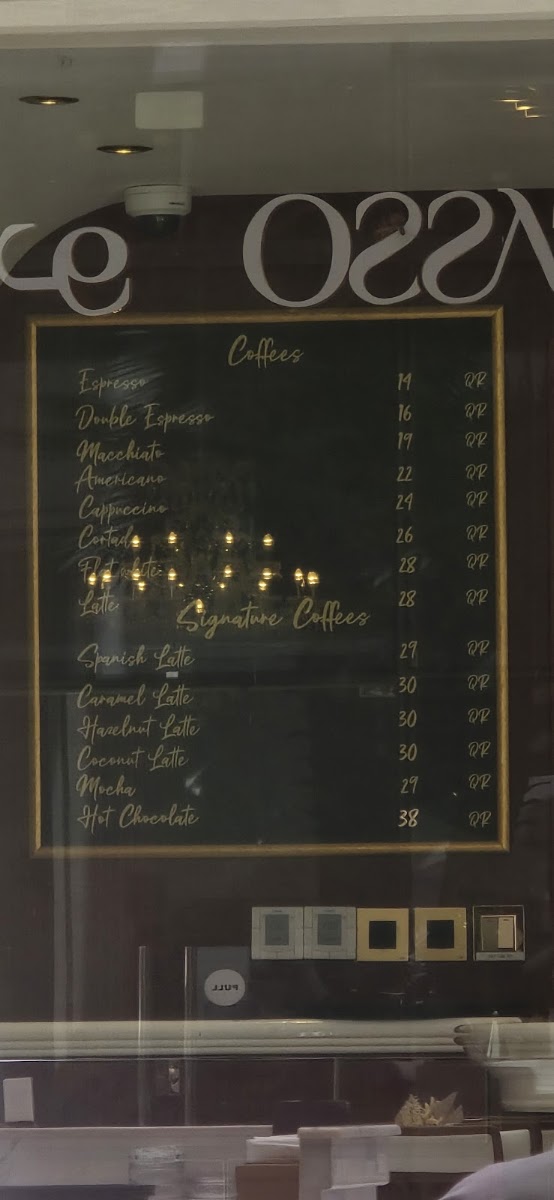 Coffees
Espresso 14 QR
Double Espresso 16 QR
Macchiato 19 QR
Americano 22 QR
Cappuccino 24 QR
Cortado 26 QR
Flat white 28 QR
Latte 28 QR
Signature Coffees
Spanish Latte 29 QR
Caramel Latte 30 QR
Hazelnut Latte 30 QR
Coconut Latte 30 QR
Mocha 29 QR
Hot Chocolate 38 QR
PULL